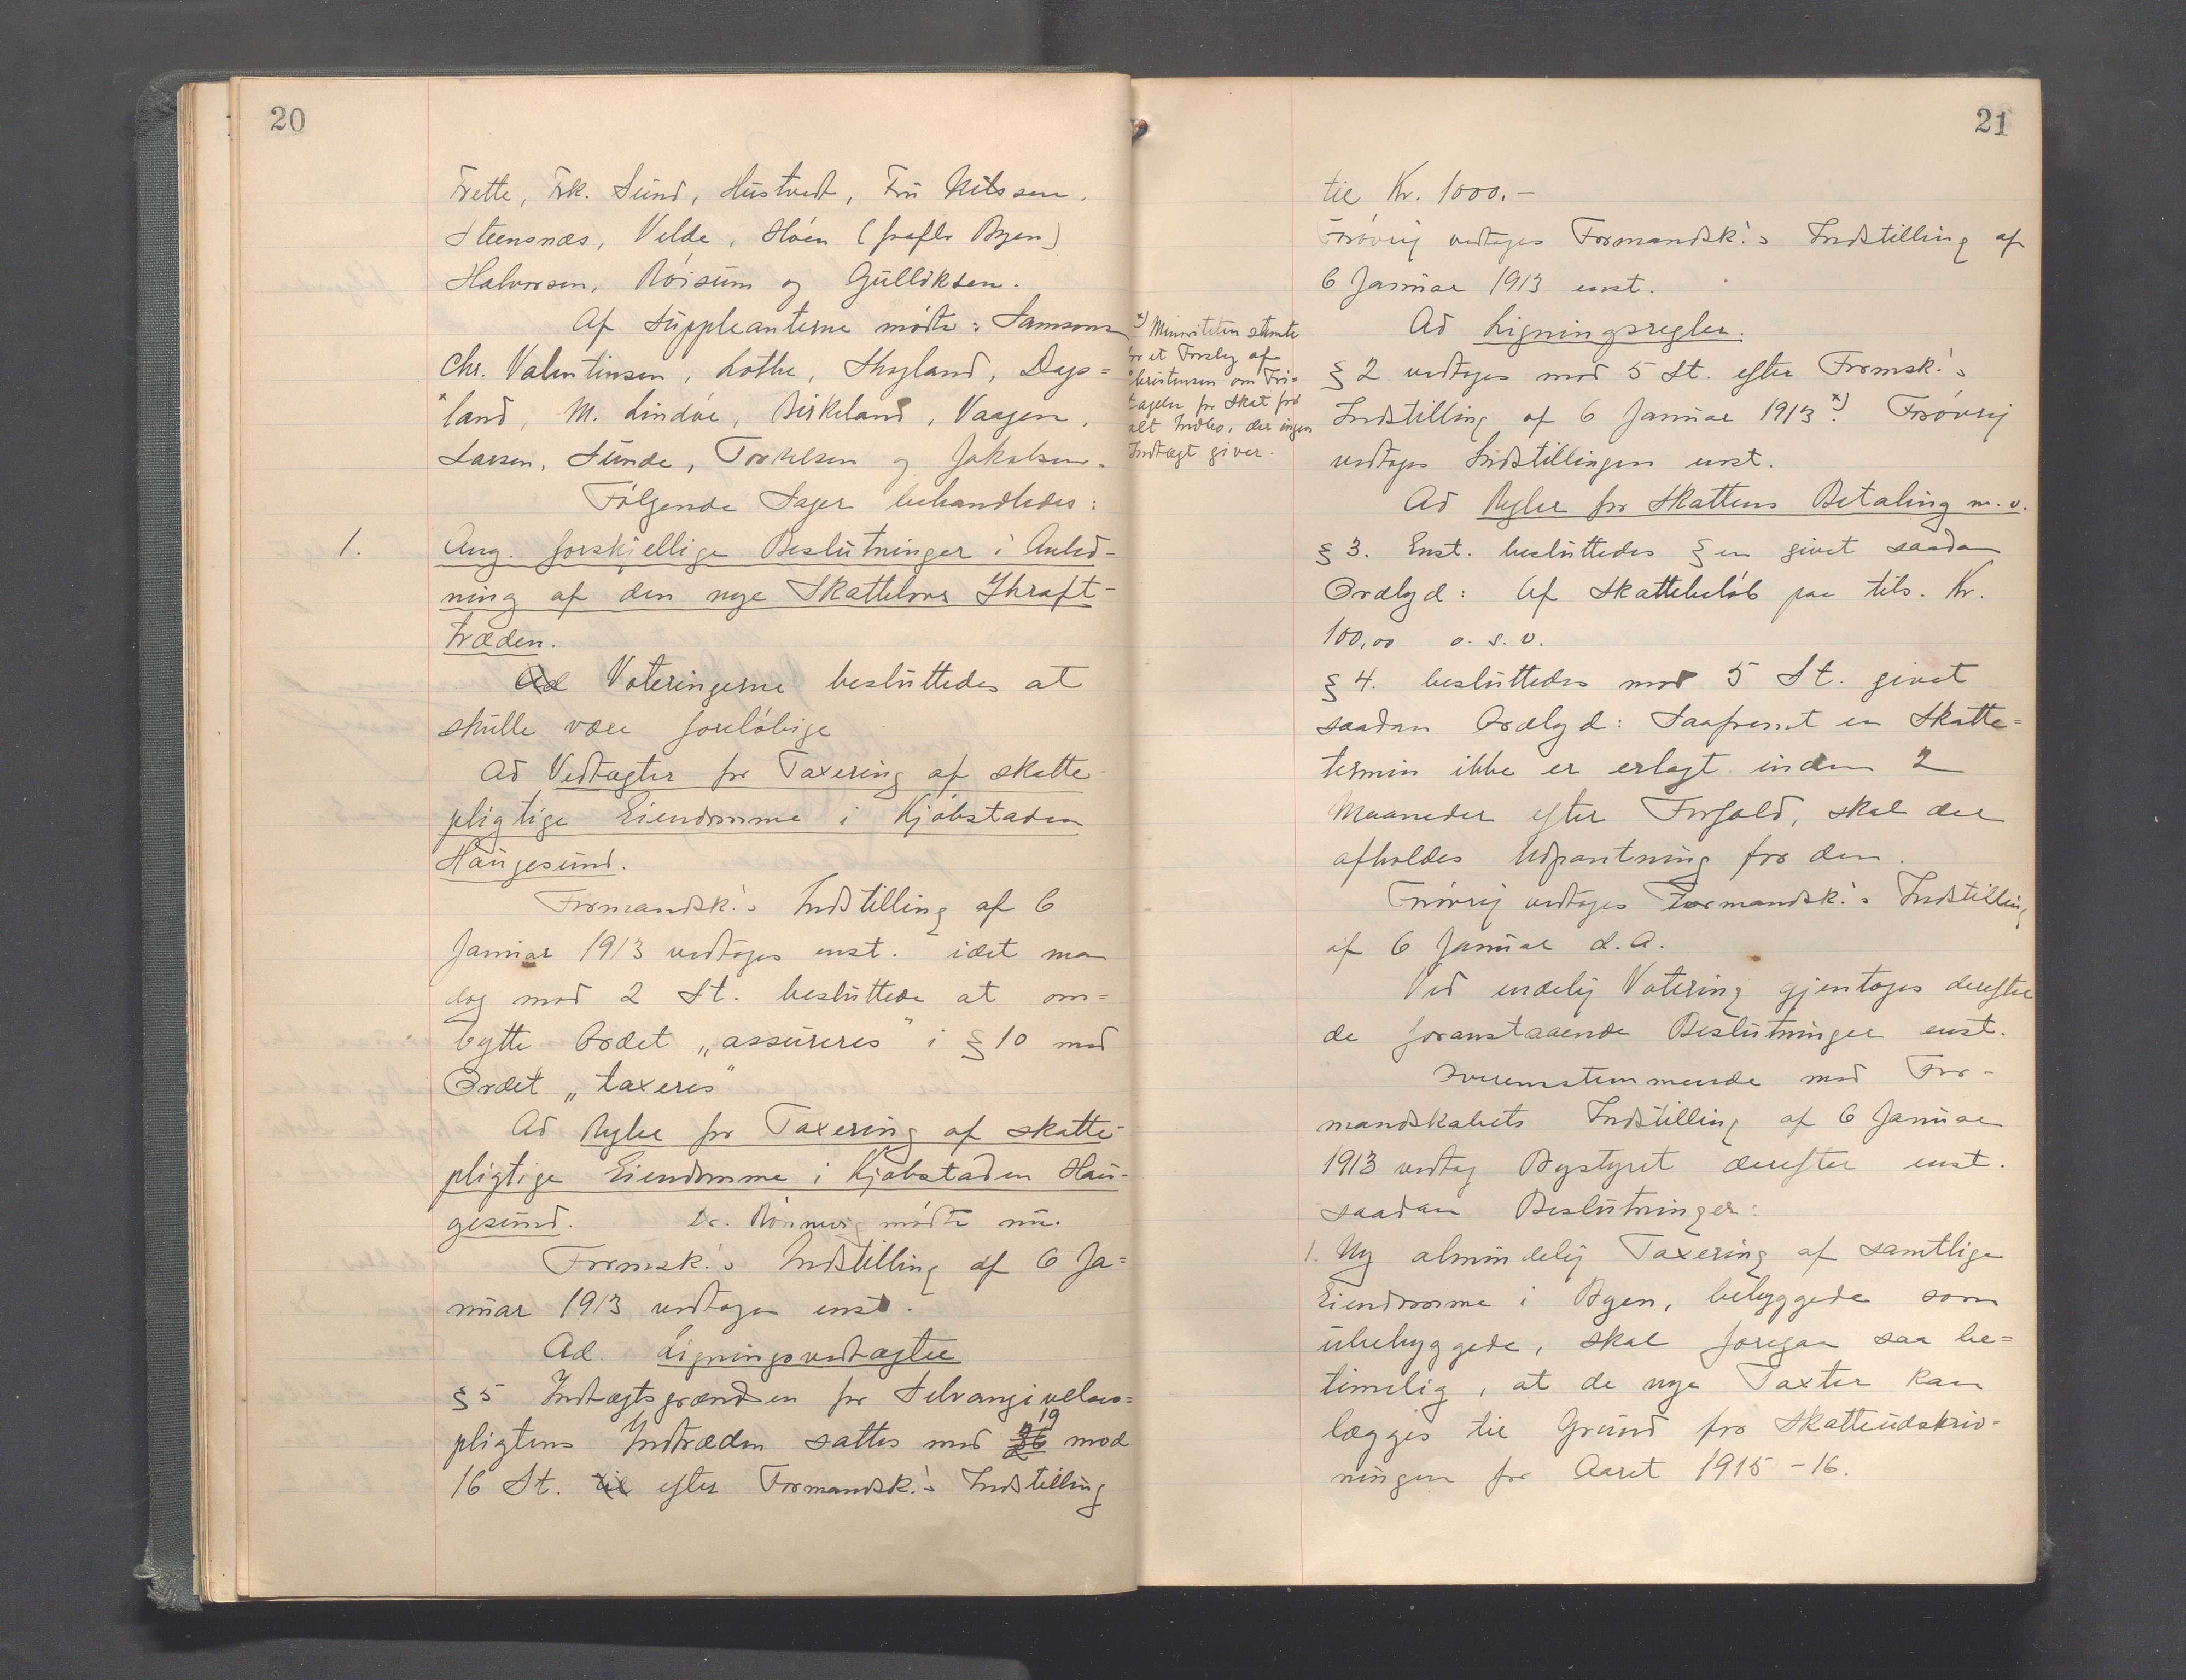 20
Frette, Frk. Sund, Hustvedt, Fru Nilssen.
Steensnæs, Velde, Høen (frafl. Byen)
Halvorsen, Røisum og Gulliksen.
Af Suppleanterne mødte: Samsons
Chr. Valentinsen, Lothe, Skogland, Dags=
land, M. Lindøe, Birkeland, Vaagen,
Larsen, Sunde, Torkelsen og Jakobsen.
Følgende Sager behandledes:
1. Ang. forskjellige Beslutninger i Anled-
ning af den nye Skattelovs Ikraft-
træden.
Ad Voteringerne besluttedes at
skulle være foreløbige
Ad Vedtægter for Taxering af skatte
pligtige Eiendomme i Kjøbstaden
Haugesund.
Formandsk.'s Indstilling af 6
Januar 1913 vedtoges enst. idet man
dog mod 2 St. besluttede at om=
bytte Ordet „assureres" i § 10 med
Ordet „taxeres"
Ad Regler for Taxering af skatte-
pligtige Eiendomme i Kjøbstaden Hau-
gesund. Dr. Rønnevig mødte nu.
Formsk.'s Indstilling af 6 Ja=
nuar 1913 vedtoges enst.
Ad. Ligningsvedtægter
§ 5 Indtægtsgrændsen for Selvangivelses=
pligtens Indtræden sattes med 19 mod
16 St. til efter Formandsk.'s Indstilling
21
til Kr. 1000.-
Forøvrig vedtoges Formandsk.'s Indstilling af
6 Januar 1913 enst.
Ad Ligningsregler.
§ 2 vedtoges mod 5 St. efter Formsk.'s
Indstilling af 6 Januar 1913 x). Forøvrig
vedtoges Indstillingen enst.
x) Minoriteten stemte
for et Forslag af
Christensen om Fri=
tagelse for Skat for
alt Indbo, der ingen
Indtægt giver.
Ad Regler for Skattens Betaling m.v.
§ 3. Enst. besluttedes §en givet saadan
Ordlyd: Af Skattebeløb paa tils. Kr.
100,00 o.s.v.
§ 4. besluttedes mod 5 St. givet
saadan Ordlyd: Saafremt en Skatte=
termin ikke er erlagt inden 2
Maaneder efter Forfald, skal der
afholdes Udpantning for den.
Forøvrig vedtoges Formandsk.'s Indstilling
af 6 Januar d.A.
Ved endelig Votering gjentoges derefter
de foranstaaende Beslutninger enst.
Overensstemmende med For-
mandskabets Indstilling af 6 Januar
1913 vedtog Bystyret derefter enst.
saadan Beslutninger:
1. Ny almindelig Taxering af samtlige
Eiendomme i Byen, bebyggede som
ubebyggede, skal foregaa saa be=
timelig, at de nye Taxter kan
lægges til Grund for Skatteudskriv=
ningen for Aaret 1915-16.